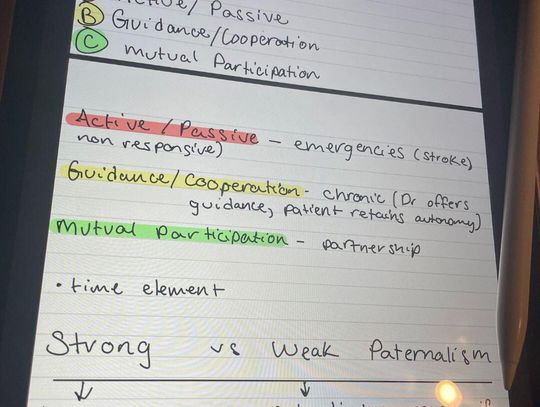 Passive
B Guidance/Cooperation
C mutual Participation
Active / Passive – emergencies (stroke,
non responsive)
Guidance/Cooperation - chronic (Dr offers
guidance, patient retains autonomy)
Mutual participation – partnership
• time element
Strong vs Weak Paternalism